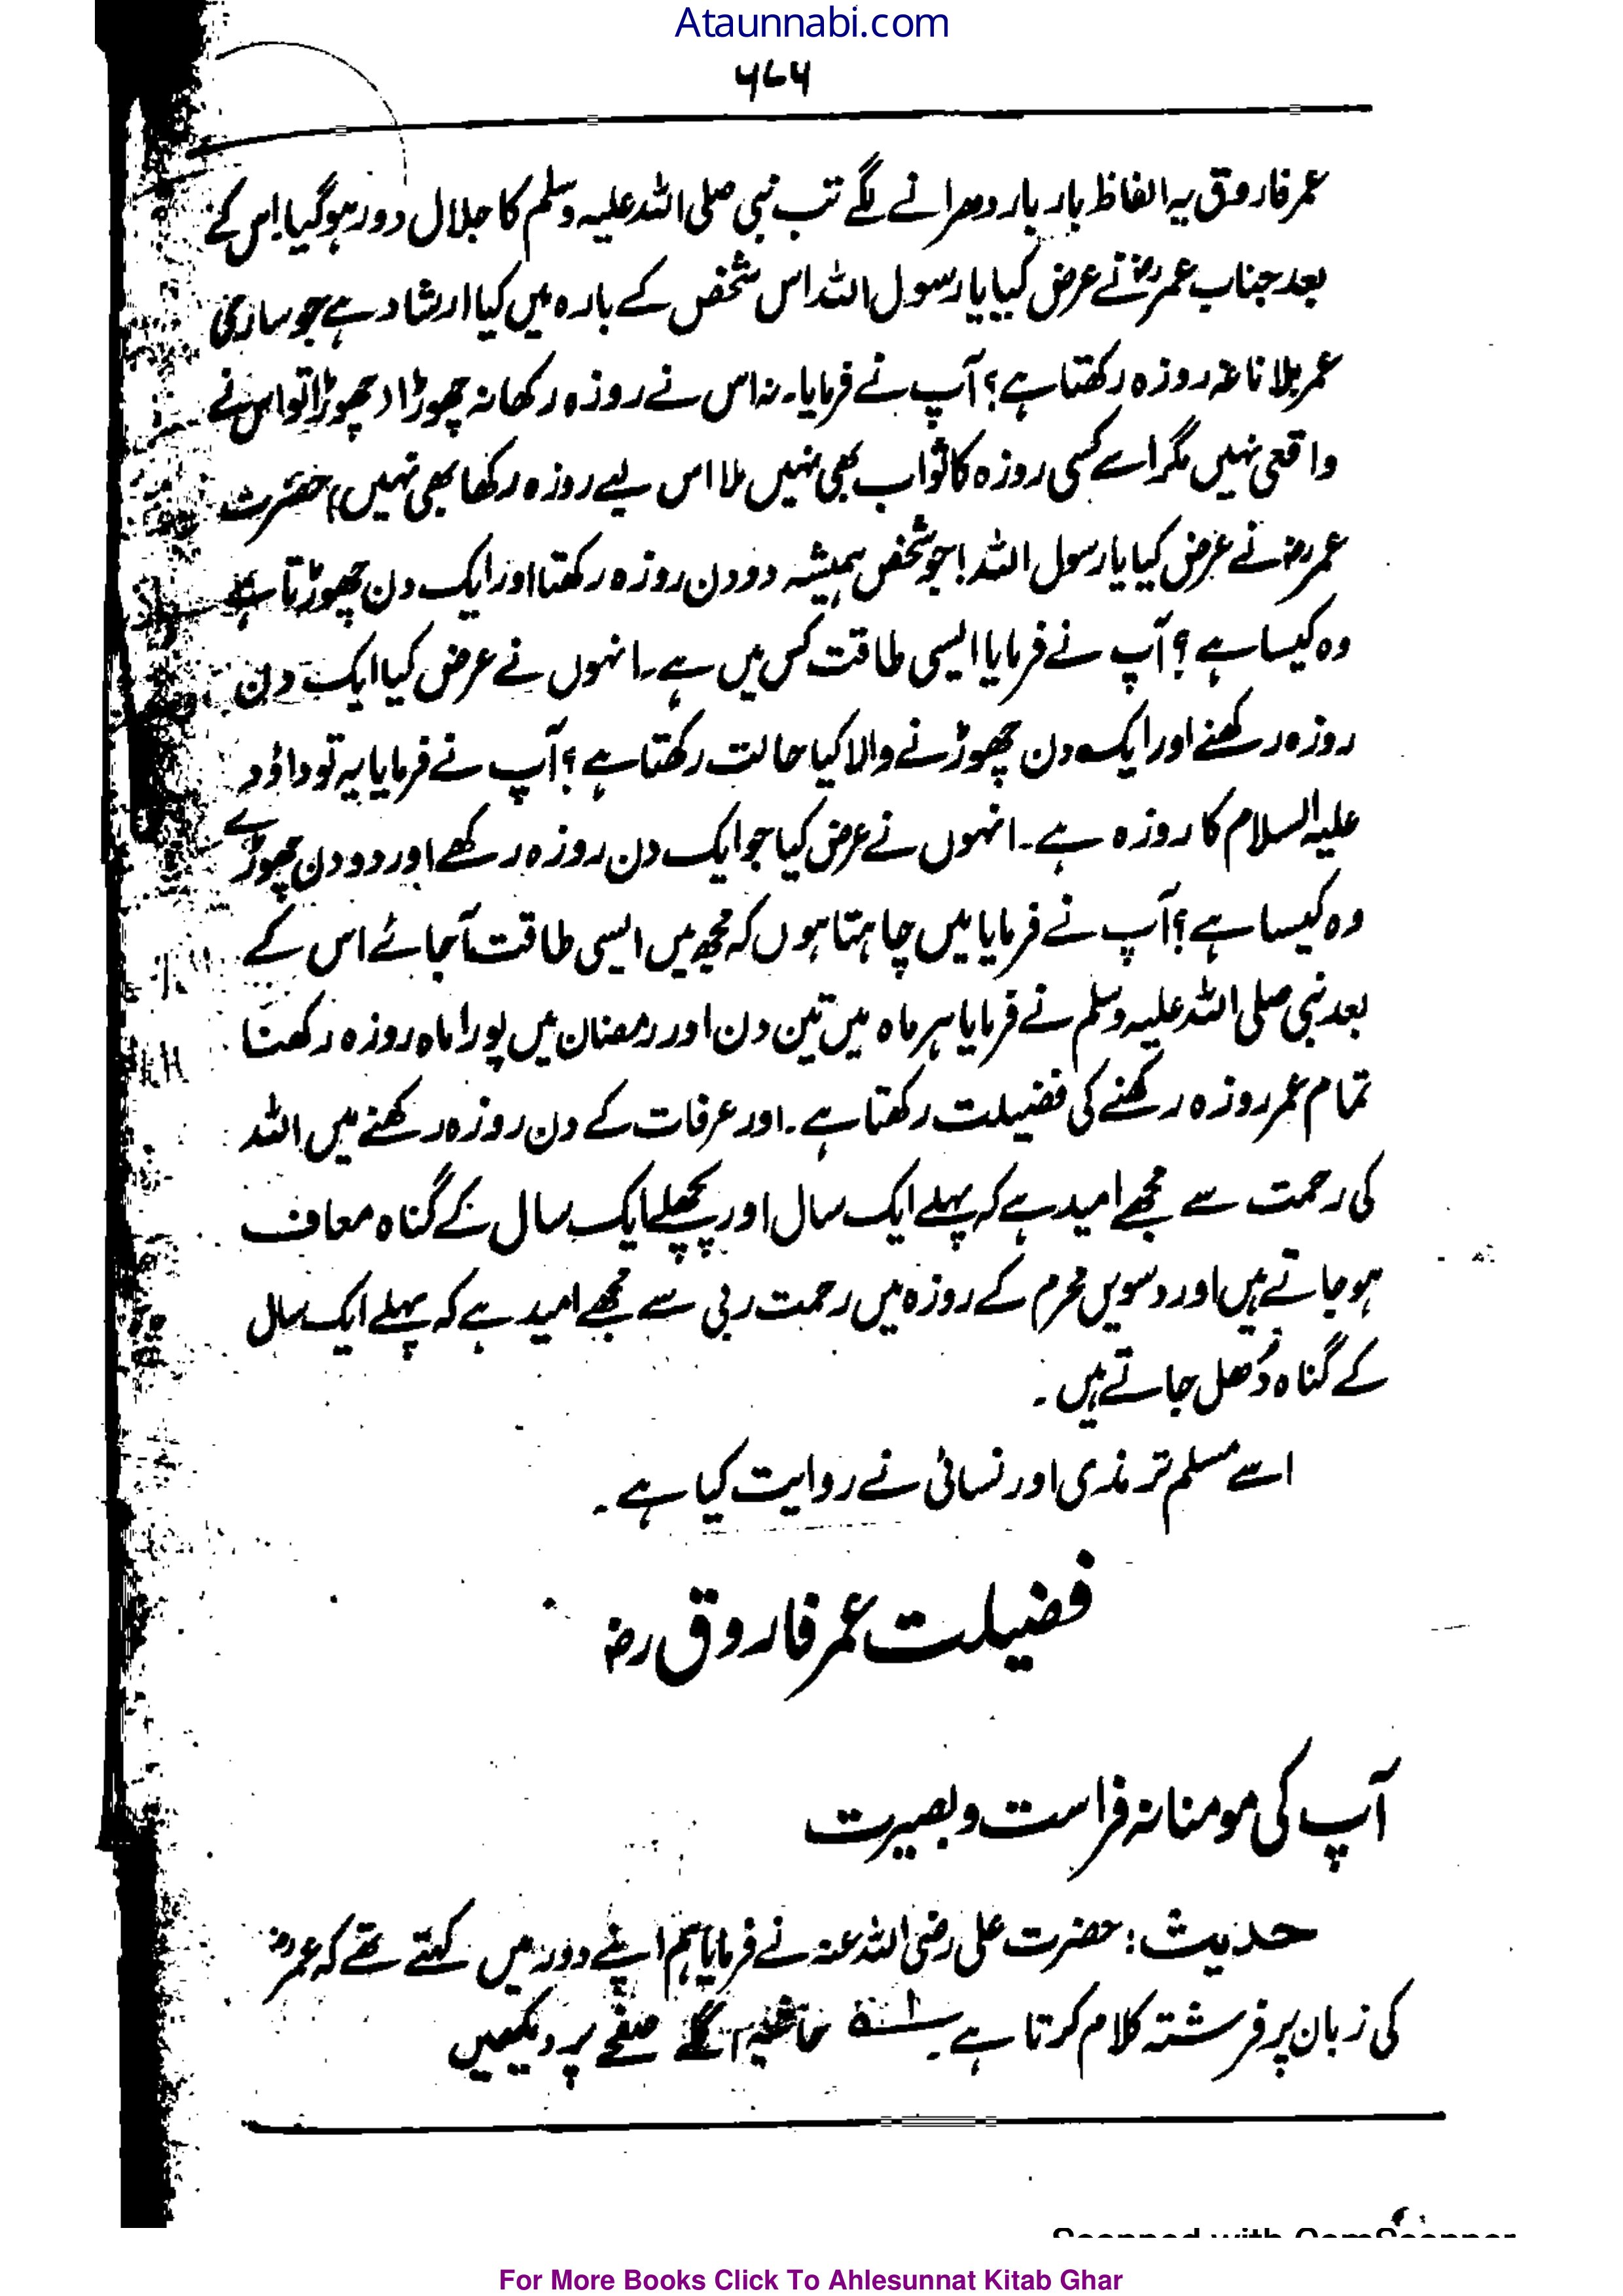 Ataunnabi.com
۶۷۶
عمر فاروق یہ الفاظ بار بار دھرانے لگے تب نبی صلی اللہ علیہ وسلم کا جلال دور ہو گیا۔ اس کے
بعد جناب عمرؓ نے عرض کیا یا رسول اللہ اس شخص کے بارہ میں کیا ارشاد ہے جو ساری
عمر بلا ناغہ روزہ رکھتا ہے؟ آپ نے فرمایا۔ نہ اس نے روزہ رکھا نہ چھوڑا (چھوڑا تو اس نے
واقعی نہیں مگر اسے کسی روزہ کا ثواب بھی نہیں ملا اس لیے روزہ رکھا بھی نہیں) حضرت
عمرؓ نے عرض کیا یا رسول اللہ! جو شخص ہمیشہ دو دن روزہ رکھتا اور ایک دن چھوڑتا ہے
وہ کیسا ہے؟ آپ نے فرمایا ایسی طاقت کس میں ہے۔ انہوں نے عرض کیا ایک دن
روزہ رکھنے اور ایک دن چھوڑنے والا کیا حالت رکھتا ہے؟ آپ نے فرمایا یہ تو داؤد
علیہ السلام کا روزہ ہے۔ انہوں نے عرض کیا جو ایک دن روزہ رکھے اور دو دن چھوڑے
وہ کیسا ہے؟ آپ نے فرمایا میں چاہتا ہوں کہ مجھ میں ایسی طاقت آجائے اس کے
بعد نبی صلی اللہ علیہ وسلم نے فرمایا ہر ماہ میں تین دن اور رمضان میں پورا ماہ روزہ رکھنا
تمام عمر روزہ رکھنے کی فضیلت رکھتا ہے۔ اور عرفات کے دن روزہ رکھنے میں اللہ
کی رحمت سے مجھے امید ہے کہ پہلے ایک سال اور پچھلے ایک سال کے گناہ معاف
ہو جاتے ہیں اور دسویں محرم کے روزہ میں رحمت ربی سے مجھے امید ہے کہ پہلے ایک سال
کے گناہ دُھل جاتے ہیں۔
اسے مسلم ترمذی اور نسائی نے روایت کیا ہے۔
فضیلت عمر فاروق رضؓ
آپ کی مومنانہ فراست و بصیرت
حدیث: حضرت علی رضی اللہ عنہ نے فرمایا ہم اپنے دور میں کہتے تھے کہ عمرؓ
کی زبان پر فرشتہ کلام کرتا ہے۔ ۱ حاشیہ اگلے صفحے پر دیکھیں
Scanned with CamScanner
For More Books Click To Ahlesunnat Kitab Ghar